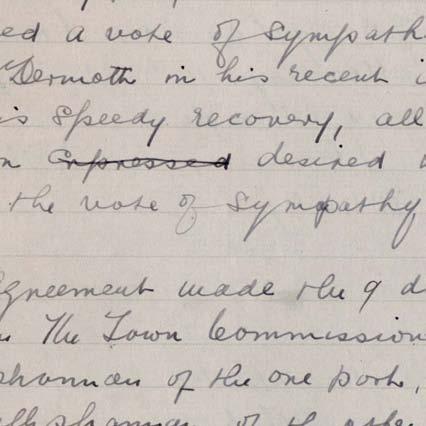 ed a vote of sympath
Dermoth in his recent i
is speedy recovery, all
n expressed desired
the vote of sympathy
greement made the 9 d
The Town Commission
shannon of the one part,
of the othe